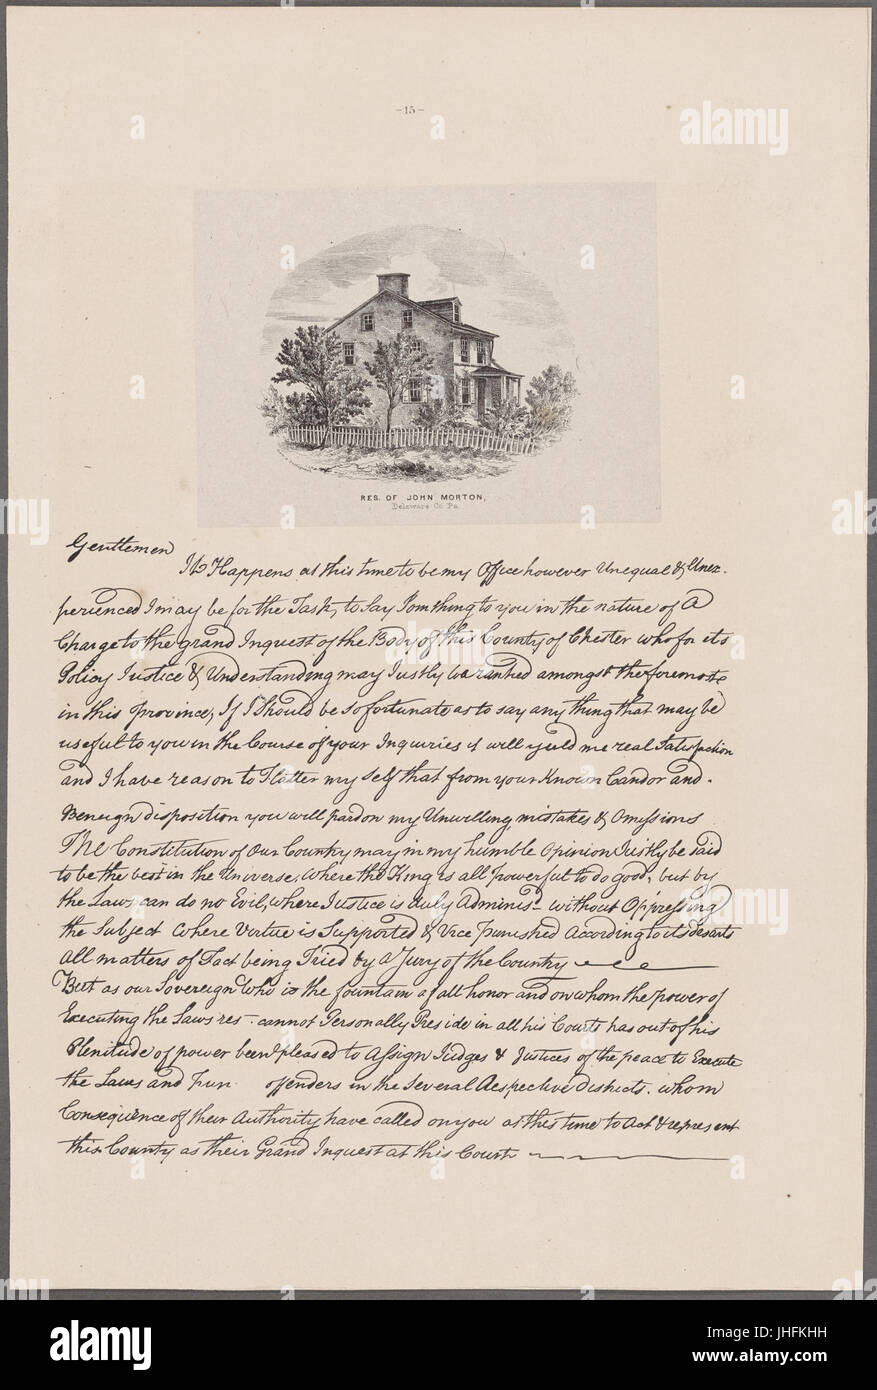 -15-
RES. OF JOHN MORTON,
Delaware Co Pa.
Gentlemen
It Happens at this time to be my Office however Unequal & Unex-
perienced I may be for the Task, to Say Something to you in the nature of A
Charge to the grand Inquest of the Body of this County of Chester who for its
Policy Justice & Understanding may Justly be ranked amongst the foremost
in this province, If I Should be so fortunate as to say any thing that may be
useful to you in the Course of your Inquiries it will yield me real Satisfaction
and I have reason to Flatter my self that from your Known Candor and
Beneign disposition you will pardon my Unwilling mistakes & Omissions
The Constitution of Our Country may in my humble Opinion Justly be said
to be the best in the Universe, where the King is all powerful to do good, but by
the Laws can do no Evil, where Justice is duly Adminis- without Oppressing
the Subject Where Virtue is Supported & Vice punished According to its desarts
All matters of Fact being Tried by a Jury of the Country
But as our Sovereign Who is the fountain of all honor and on whom the power of
Executing the Laws res- cannot Personally Preside in all his Courts has out of his
Plenitude of power been pleased to Assign Judges & Justices of the peace to Execute
the Laws and offenders in the Several Respective Districts. whom
Consequence of their Authority have called on you at this time to Act & represent
this County as their Grand Inquest at this Court
alamy
alamy stock photo
JHFKHH
www.alamy.com